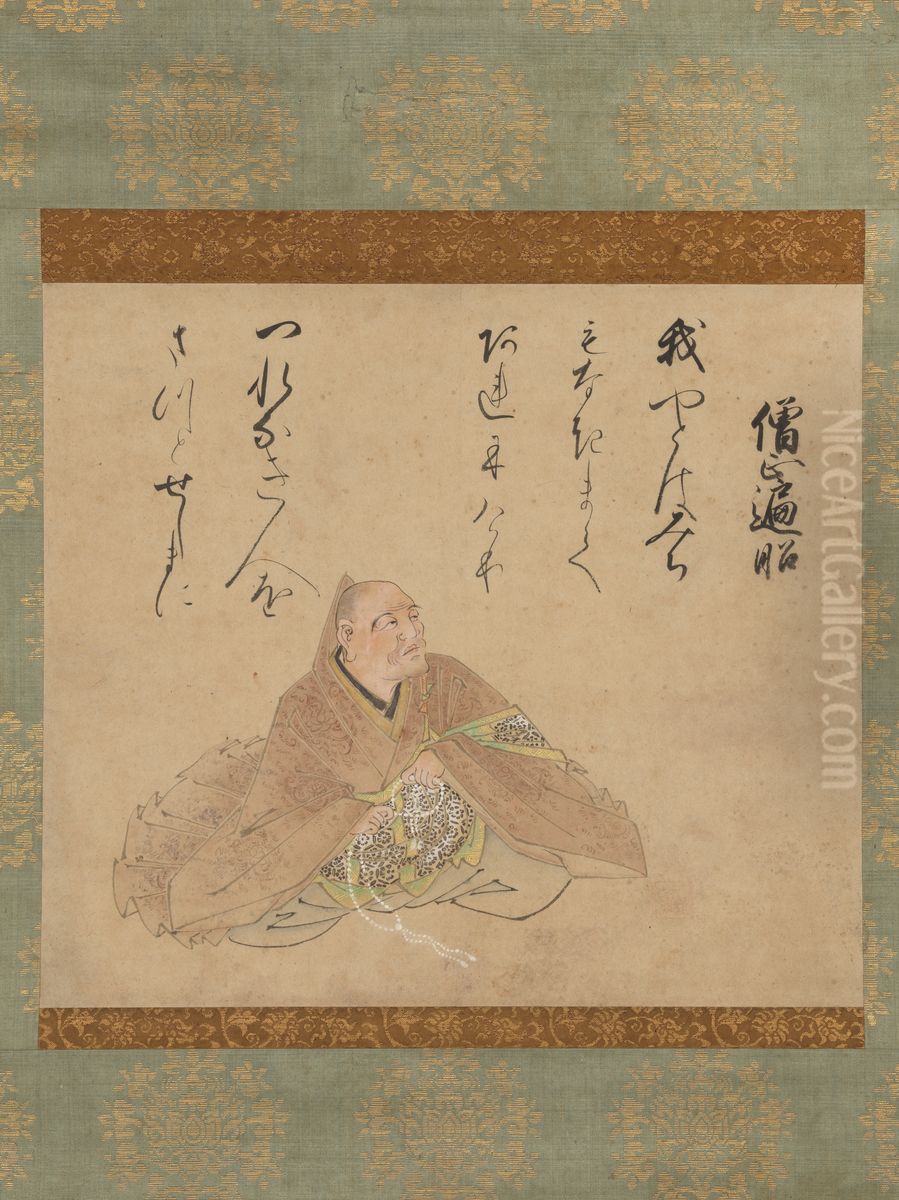 僧正遍昭
我やとはみち
もなきまて
あれにけり
つれなき人を
まつとせしまに
NiceArtGallery.com